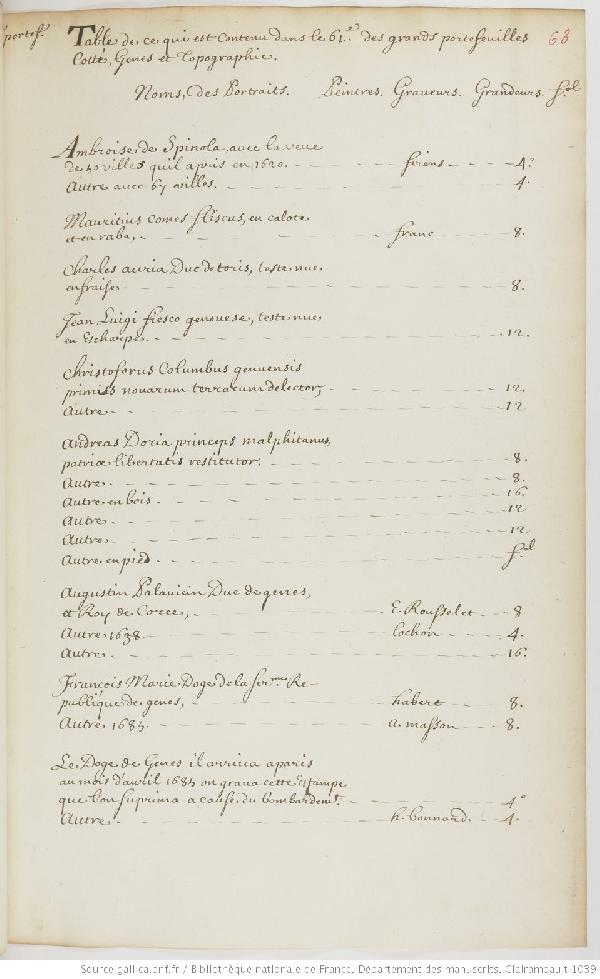 portef.
Table de ce qui est Contenu dans le 61.e des grands portefeuilles
Cotté, Genes et Topographie.
68
Noms, des Portraits. Peintres. Graveurs. Grandeurs. fol
Ambroise de Spinola, avec la veue
de 40 villes qu'il apris en 1620. firens 4.o
Autre avec 67 villes. 4.
Mauritius comes fliscus, en calote
et en rabat, franc 8.
Charles auria Duc de toris, teste nue
en fraise 8.
Jean Luigi fiesco genouese, teste nue
en Escharpe 12.
Christoforus Columbus genuensis
primis nouarum terrarum detector, 12.
Autre 12
Andreas Doria princeps malphitanus
patriæ libertatis restitutor. 8.
Autre. 8.
Autre en bois 16.
Autre 12
Autre 12.
Autre en pied fol
Augustin Palavicin Duc de genes,
et Roy de Corce, E. Rousselet 8
Autre 1638. Cochon 4.
Autre. 16.
François Marie Doge de la Ser.me Re-
publique de genes, habert 8.
Autre 1685. a. masson 8.
Le Doge de Genes il arriua a paris
au mois d'avril 1685 on graua cette Estampe
que l'on suprima a cause du bombardemt. 4.o
Autre h. bonnard. 4.
Source gallica.bnf.fr / Bibliothèque nationale de France. Département des manuscrits. Clairambault 1039